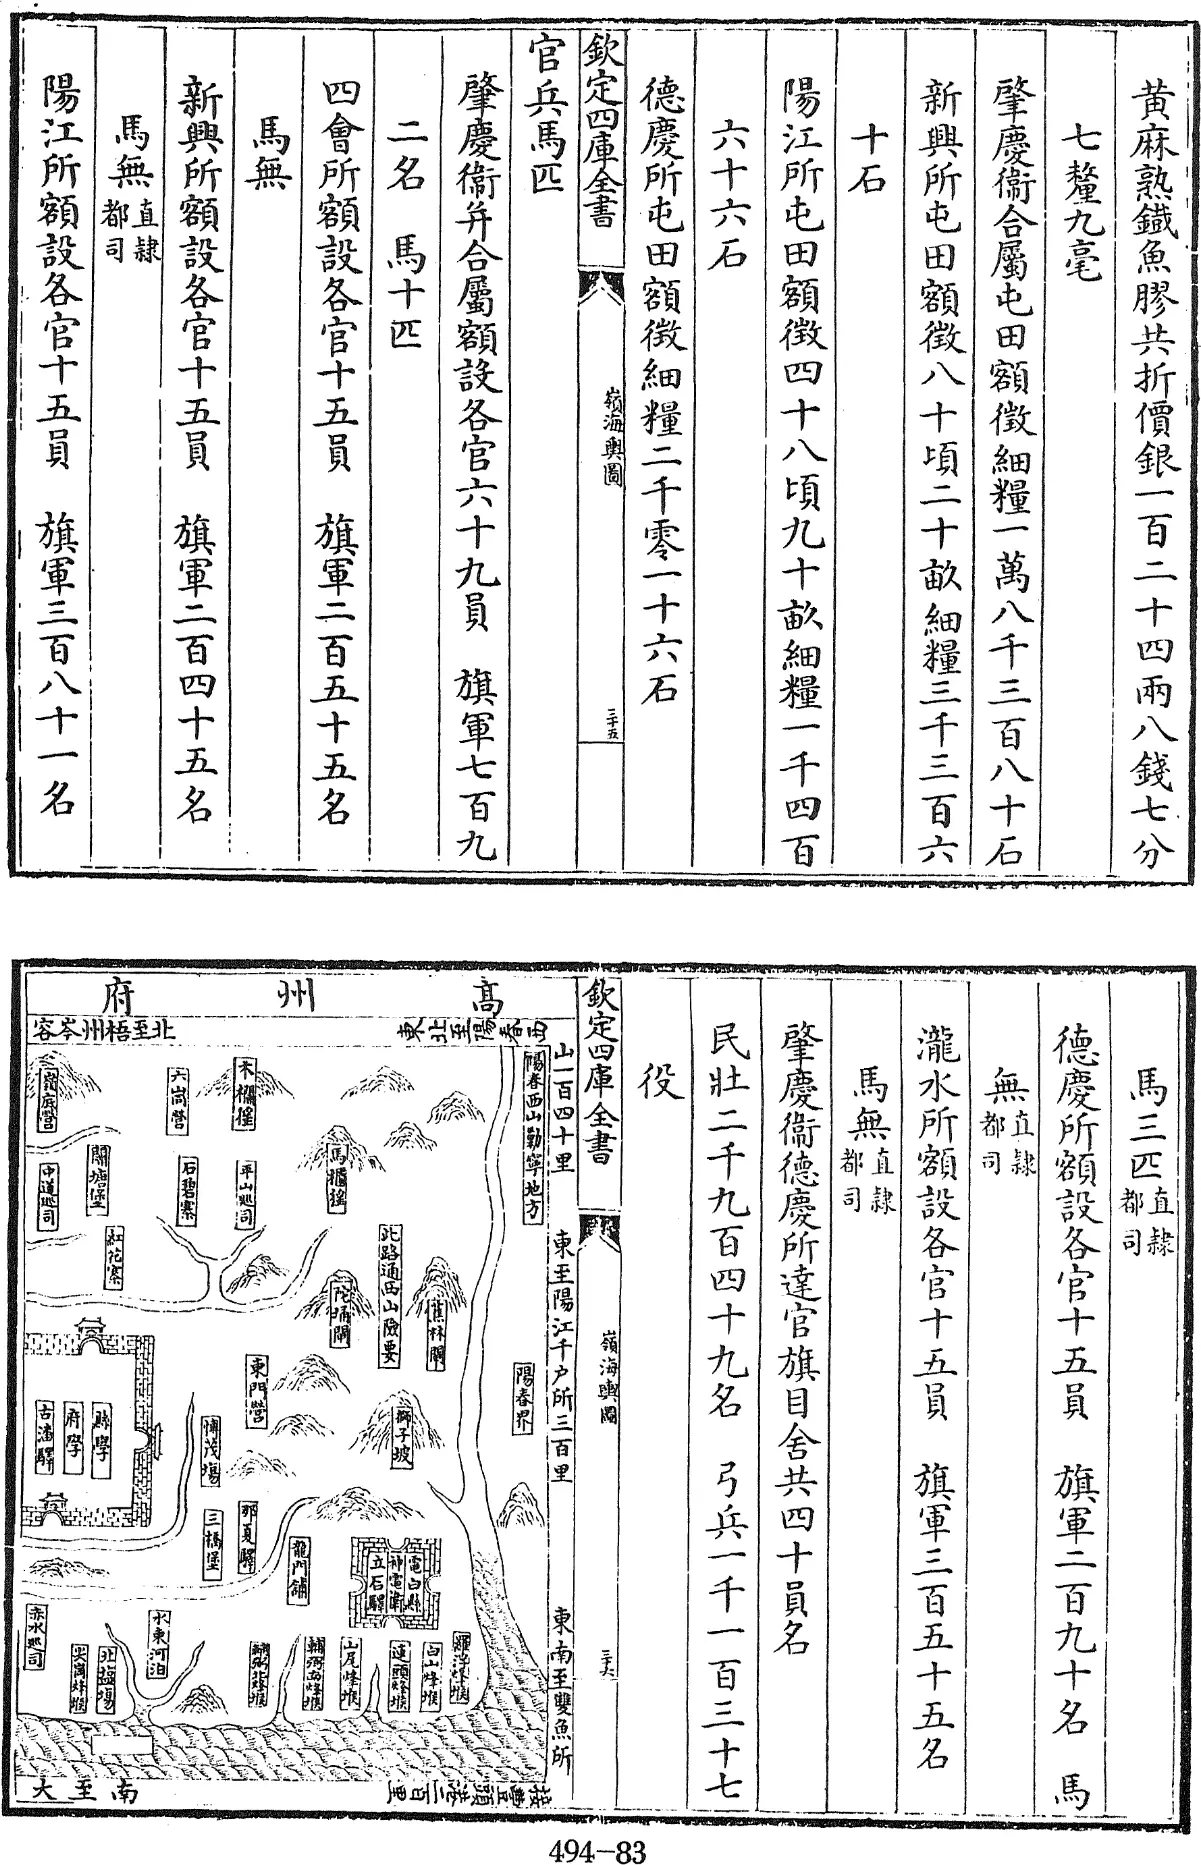 黄麻熟鐵魚膠共折價銀一百二十四兩八錢七分
七釐九毫
肇慶衞合屬屯田額徵細糧一萬八千三百八十石
新興所屯田額徵八十頃二十畝細糧三千三百六
十石
陽江所屯田額徵四十八頃九十畝細糧一千四百
六十六石
德慶所屯田額徵細糧二千零一十六石
欽定四庫全書
嶺海輿圖
三十五
官兵馬匹
肇慶衞并合屬額設各官六十九員 旗軍七百九
二名 馬十匹
四會所額設各官十五員 旗軍二百五十五名
馬無
新興所額設各官十五員 旗軍二百四十五名
馬無直隸都司
陽江所額設各官十五員 旗軍三百八十一名
馬三匹直隸都司
德慶所額設各官十五員 旗軍二百九十名 馬
無直隸都司
瀧水所額設各官十五員 旗軍三百五十五名
馬無直隸都司
肇慶衞德慶所達官旗目舍共四十員名
民壯二千九百四十九名 弓兵一千一百三十七
役
欽定四庫全書
嶺海輿圖
三十六
高州府
東北至陽春西
山一百四十里
東至陽江千户所三百里
東南至雙魚所
北至梧州岑容
南至大
陽春西山勒寧地方
木欄徭
六崗營
嶺底營
馬櫃徭
平山巡司
石碧寨
關塘堡
中道巡司
紅花寨
此路通西山險要
蕉林關
陀埇關
陽春界
東門營
獅子坡
博茂場
縣學
府學
古潘驛
那夏驛
三橋堡
龍門鋪
電白縣
神電衞
立石驛
赤水巡司
水東河泊
北搵場
尖崗烽堠
山尾烽堠
蓮頭烽堠
白山烽堠
494-83